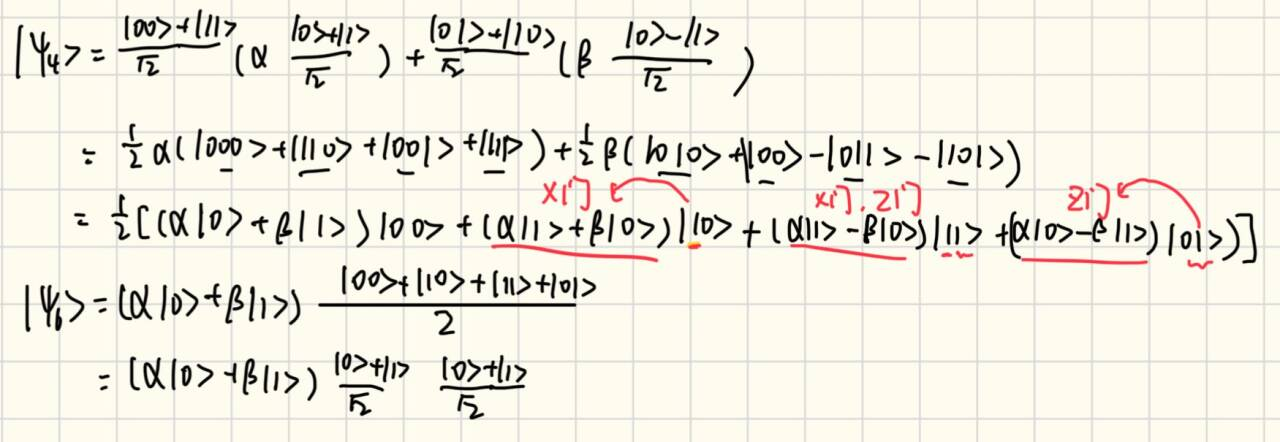 |ψ₄> = |00>+|11>/√2 (α |0>+|1>/√2) + |01>+|10>/√2 (β |0>-|1>/√2)
= 1/2 α(|000>+|110>+|001>+|111>) + 1/2 β(|010>+|100>-|011>-|101>)
X门 X门, Z门 Z门
= 1/2[(α|0>+β|1>)|00> + (α|1>+β|0>)|10> + (α|1>-β|0>)|11> + (α|0>-β|1>)|01>)]
|ψ₆> = (α|0>+β|1>) |00>+|10>+|11>+|01>/2
= (α|0>+β|1>) |0>+|1>/√2 |0>+|1>/√2